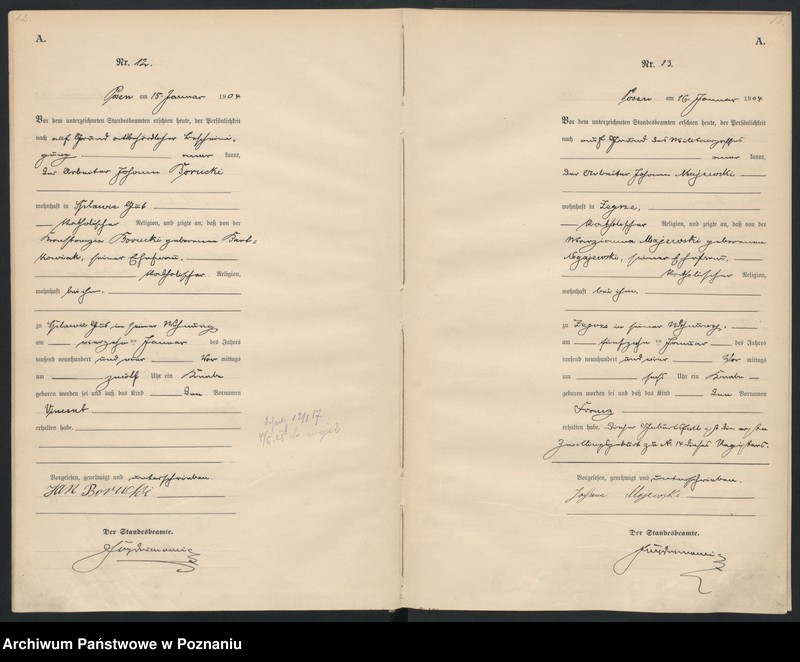 12.
A.
Nr. 12.
Posen am 15. Januar 1904
Vor dem unterzeichneten Standesbeamten erschien heute, der Persönlichkeit
nach auf Grund ortsbehördlicher Bescheini-
gung kannt,
der Arbeiter Johann Borucki
wohnhaft in Gut
katholischer Religion, und zeigte an, daß von der
Konstanzia Borucki geborenen Bart-
kowiak, seiner Ehefrau,
katholischer Religion,
wohnhaft bei ihm.
zu Gut in seiner Wohnung
am vierzehnten Januar des Jahrs
tausend neunhundert und vier Vormittags
um zwölf Uhr ein Knabe
geboren worden sei und daß das Kind den Vornamen
Vincent
erhalten habe.
Vorgelesen, genehmigt und unterschrieben.
Jan Borucki
Der Standesbeamte.
13.
A.
Nr. 13.
Posen am 16. Januar 1904
Vor dem unterzeichneten Standesbeamten erschien heute, der Persönlichkeit
nach auf Grund des Militärpasses
kannt,
der Arbeiter Johann Majewski
wohnhaft in Zegrze,
katholischer Religion, und zeigte an, daß von der
Majewski geborenen
Majewski, seiner Ehefrau,
katholischer Religion,
wohnhaft bei ihm.
zu Zegrze in seiner Wohnung.
am fünfzehnten Januar des Jahrs
tausend neunhundert und vier Vormittags
um sechs Uhr ein Knabe
geboren worden sei und daß das Kind den Vornamen
Franz
erhalten habe. Dieser Geburtsfall ist die erste
Zwillingsgeburt zu N. 14 dieses Registers.
Vorgelesen, genehmigt und unterschrieben.
Johann Majewski
Der Standesbeamte.
Archiwum Państwowe w Poznaniu